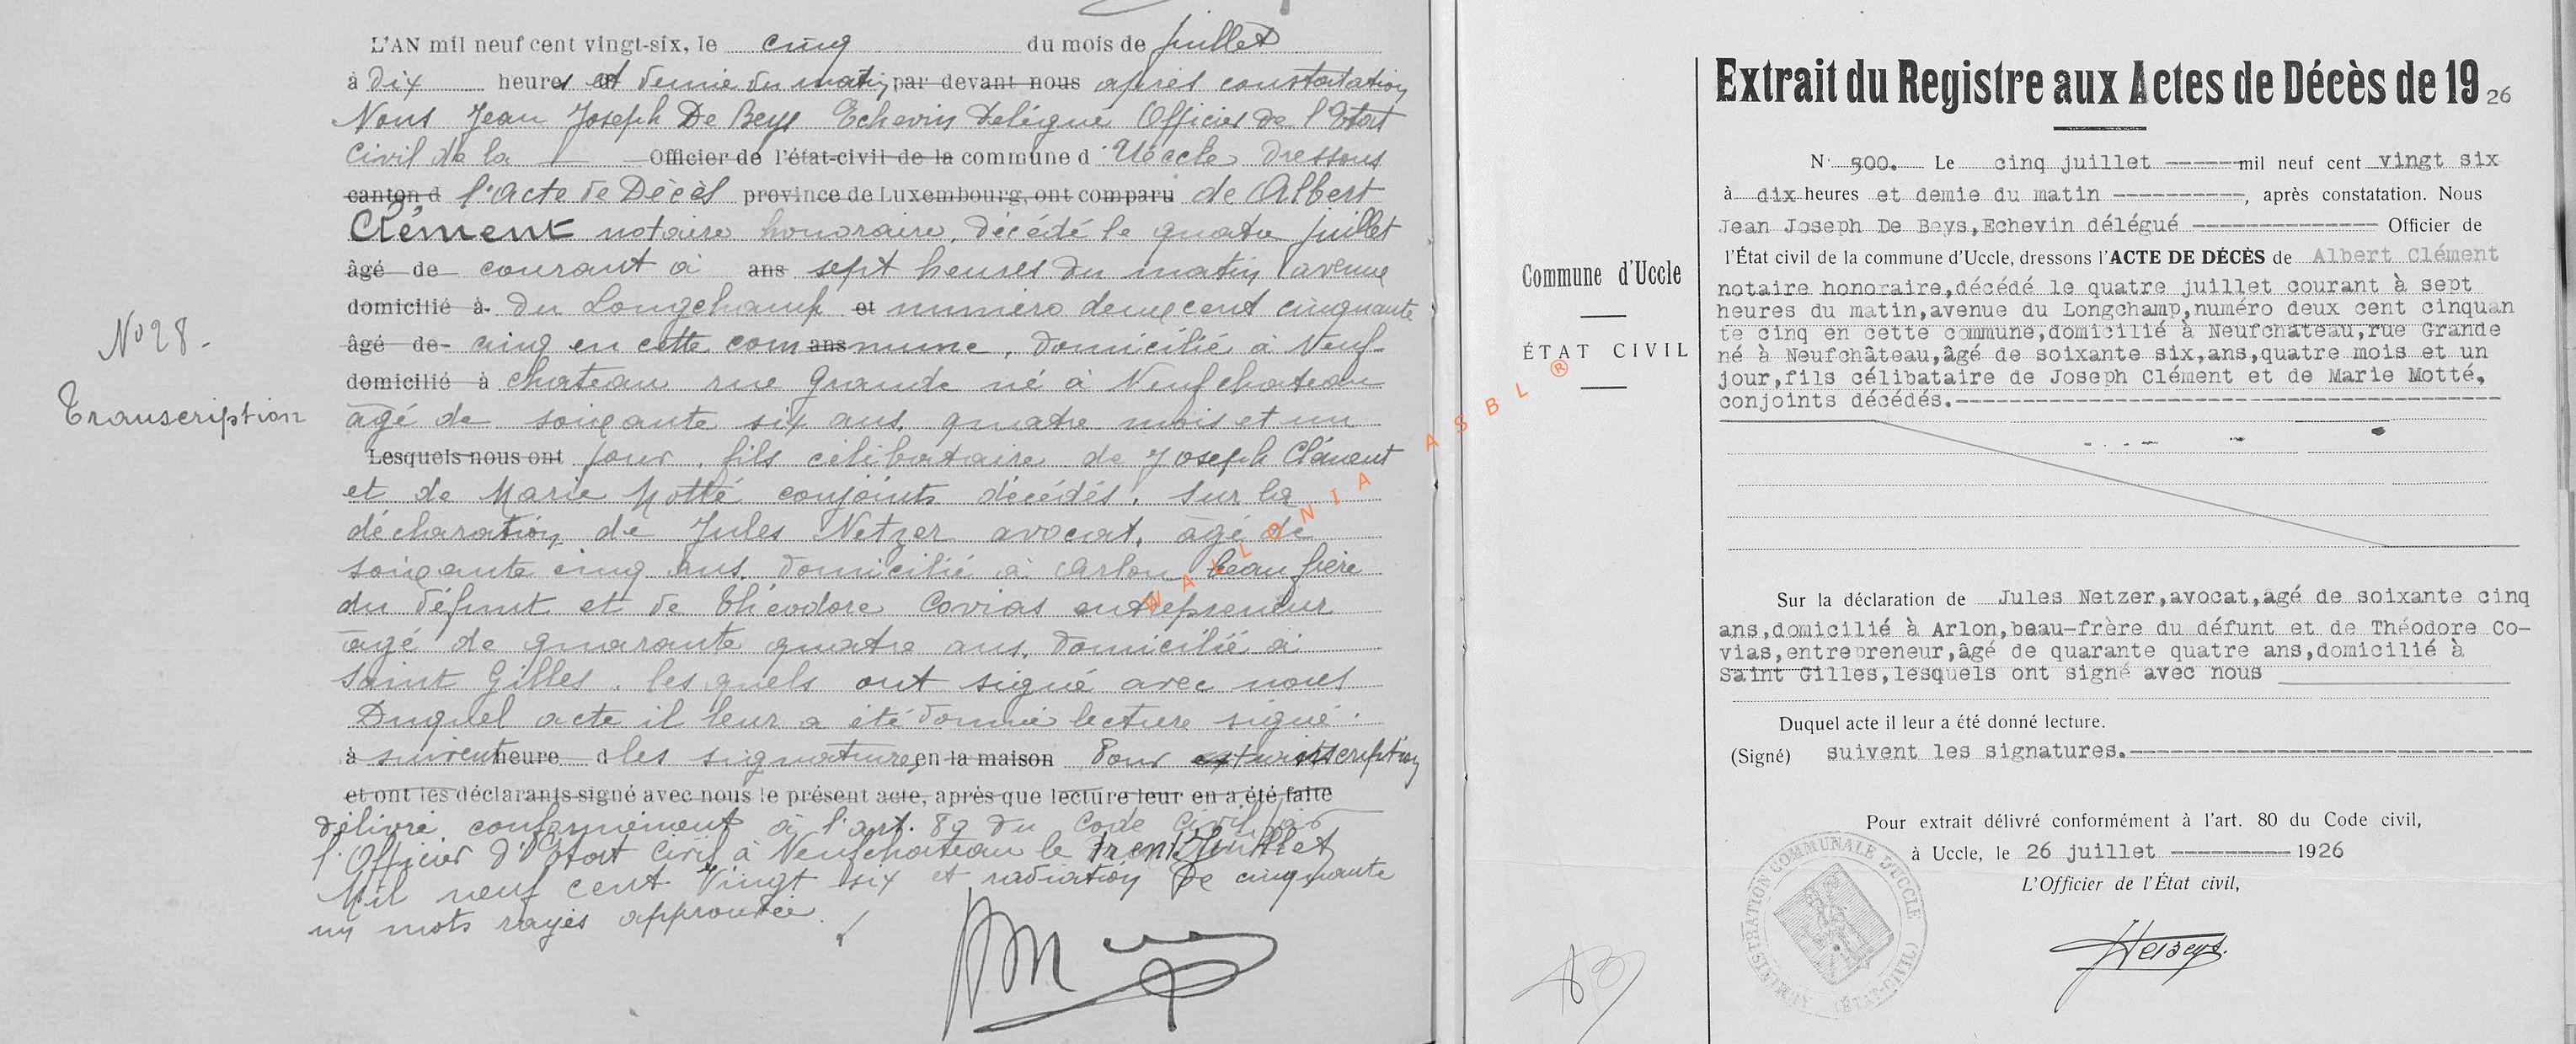 L'AN mil neuf cent vingt-six, le cinq du mois de juillet
à dix heures et demie du matin par devant nous après constatation
Nous Jean Joseph De Beys Echevin délégué Officier de l'Etat
Civil de la Officier de l'état-civil de la commune d'Uccle dressons
canton d l'acte de Décès province de Luxembourg, ont comparu de Albert
Clément notaire honoraire, décédé le quatre juillet
âgé de courant à ans sept heures du matin avenue
domicilié à du Longchamp et numéro deux cent cinquante
âgé de cinq en cette com ans mune, domicilié à Neuf-
domicilié à chateau rue Grande né à Neufchateau
âgé de soixante six ans, quatre mois et un
Lesquels nous ont jour, fils célibataire de Joseph Clément
et de Marie Motté conjoints décédés. Sur la
déclaration de Jules Netzer avocat, âgé de
soixante cinq ans, domicilié à Arlon beau frère
du défunt et de Théodore Covias entrepreneur
âgé de quarante quatre ans, domicilié à
Saint Gilles, lesquels ont signé avec nous
Duquel acte il leur a été donné lecture signé.
à suivent heure d les signatures en la maison Pour transcription
et ont les déclarants signé avec nous le présent acte, après que lecture leur en a été faite
délivré conformément à l'art. 80 du Code Civil par
l'Officier d'Etat Civil à Neufchateau le trente Juillet
Mil neuf cent Vingt six et radiation de cinquante
un mots rayés approuvée.
No 28.
Transcription
WALLONIA ASBL ®
Commune d'Uccle
ÉTAT CIVIL
Extrait du Registre aux Actes de Décès de 1926
N° 500. Le cinq juillet -------mil neuf cent vingt six
à dix heures et demie du matin ----------, après constatation. Nous
Jean Joseph De Beys,Echevin délégué -------------- Officier de
l'État civil de la commune d'Uccle, dressons l'ACTE DE DÉCÈS de Albert Clément
notaire honoraire,décédé le quatre juillet courant à sept
heures du matin,avenue du Longchamp,numéro deux cent cinquan
te cinq en cette commune,domicilié à Neufchateau,rue Grande
né à Neufchâteau,âgé de soixante six,ans,quatre mois et un
jour,fils célibataire de Joseph Clément et de Marie Motté,
conjoints décédés.----------------------------------------
Sur la déclaration de Jules Netzer,avocat,âgé de soixante cinq
ans,domicilié à Arlon,beau-frère du défunt et de Théodore Co-
vias,entrepreneur,âgé de quarante quatre ans,domicilié à
Saint Gilles,lesquels ont signé avec nous
Duquel acte il leur a été donné lecture.
(Signé) suivent les signatures.------------------------------
Pour extrait délivré conformément à l'art. 80 du Code civil,
à Uccle, le 26 juillet --------- 1926
L'Officier de l'État civil,
ADMINISTRATION COMMUNALE D'UCCLE
(ÉTAT-CIVIL)